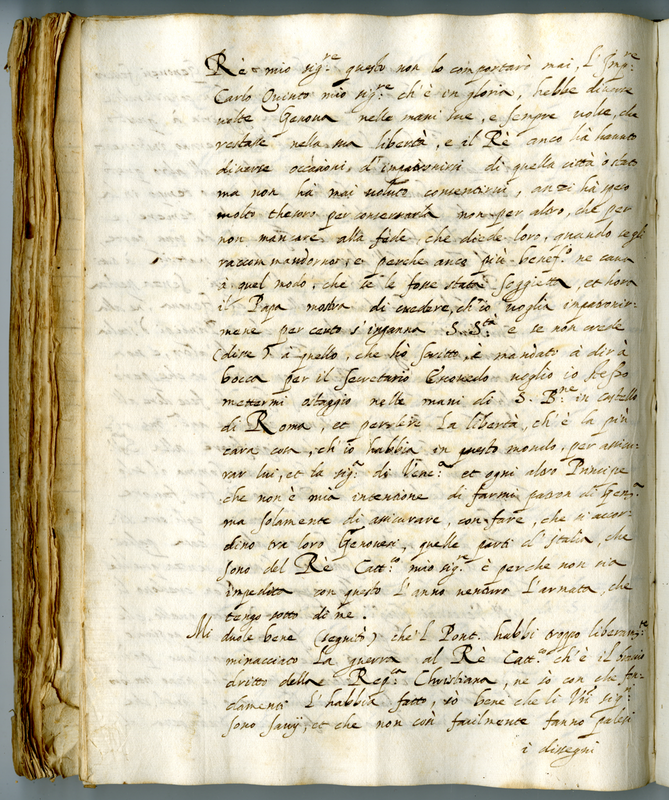 Rè mio sig.re questo non lo comportarò mai, L'Imp.re
Carlo Quinto mio sig.re ch'è in gloria, hebbe diverse
volte Genova nelle mani sue, e sempre volse, che
restasse nella sua libertà, e il Rè anco hà havuto
diverse occasioni, d'impatronirsi di quella città o stato
ma non hà mai voluto consentirvi, anzi hà speso
molto thesoro per conservarla non per altro, che per
non mancare alla fede, che diede loro, quando se gli
raccom mandorno, e perche anco più benef.o ne cava
à quel modo, che se le fosse stata soggietta, et hora
il Papa mostra di credere, ch'io voglia impatronir-
mene per certo s'inganna S. S.tà e se non crede
(disse) à quello, che hò scritto, e mandato à dir à
bocca per il secretario Escovedo voglio io stesso
mettermi ostaggio nelle mani di S. B.ne in castello
di Roma, et perdere la libertà, ch'è la più
cara cosa, ch'io habbia in questo mondo, per assicu-
rar lui, et la sig.a di Ven.a et ogni altro Principe
che non è mia intentione di farmi patron di Gen.a
ma solamente di assicurare, con fare, che si accor-
dino tra loro Genovesi, quelle parti d'Italia, che
sono del Rè Catt.co mio sig.re e perche non sia
impedita con questo l'anno venturo l'armata, che
tengo sotto di me.
Mi duole bene (seguitò) che'l Pont. habbi troppo liberam.te
minacciato la guerra al Rè Catt.co ch'è il braccio
dritto della Rep.a Christiana, ne sò con che fon-
damenti l'habbia fatto, sò bene che li Vri sig.ri
sono savij, et che non così facilmente fanno palesi
i dissegni